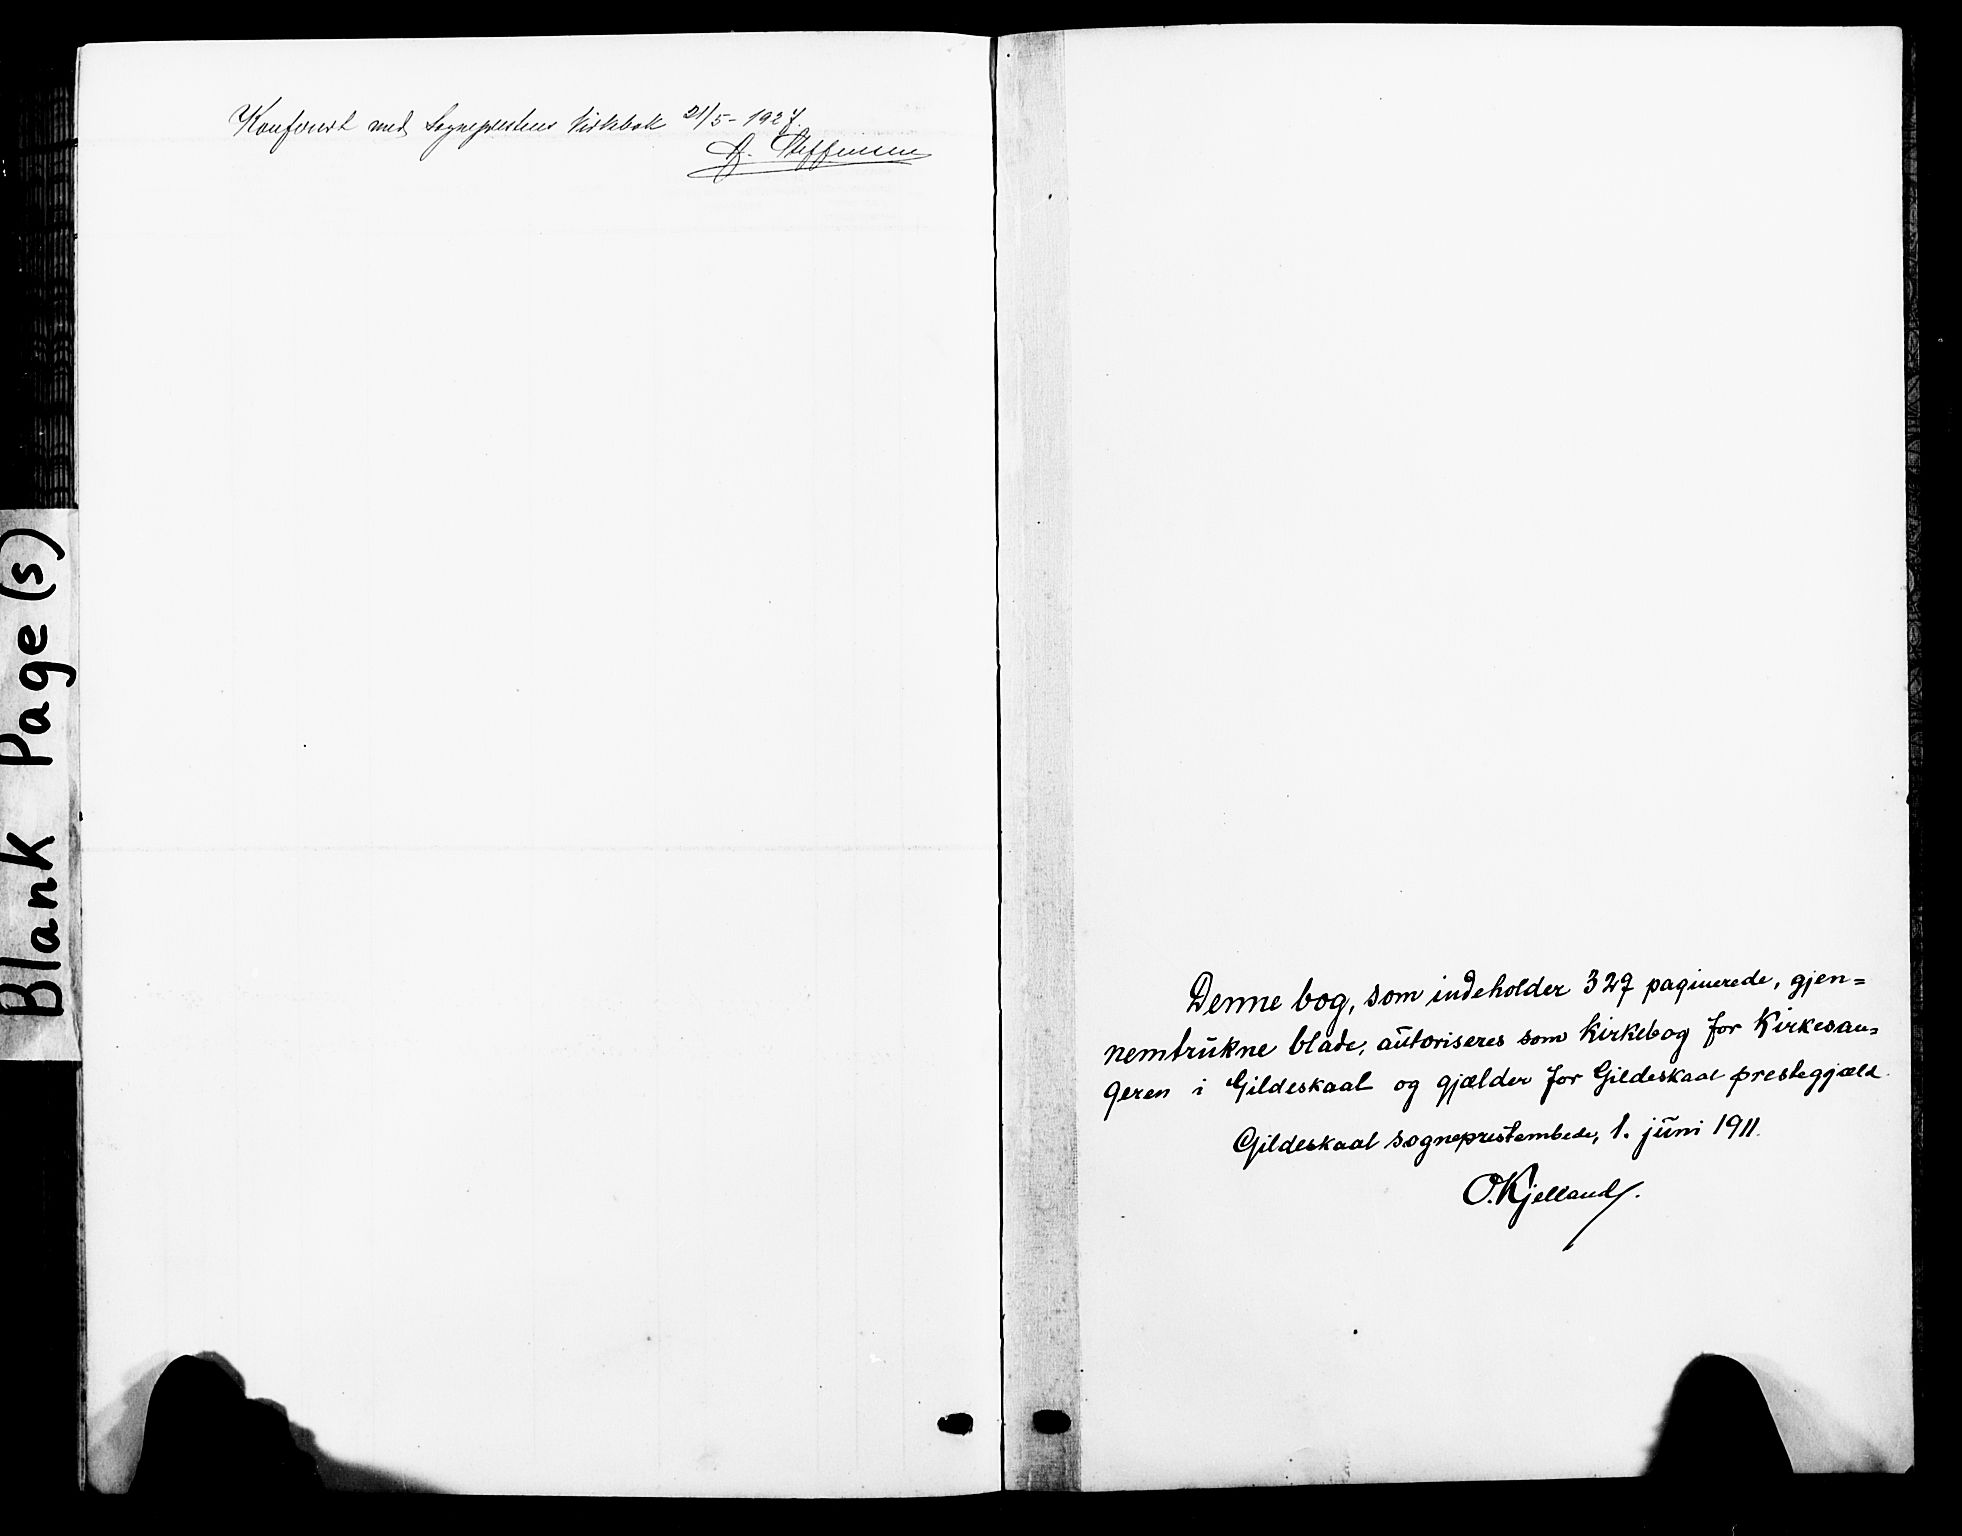 Konferert med Sogneprestens kirkebok 21/5-1927.
Steffensen
Blank Page(s)
Denne bog, som indeholder 327 paginerede, gjen=
nemtrukne blade, autoriseres som kirkebog for Kirkesan=
geren i Gildeskaal og gjælder for Gildeskaal prestegjæld.
Gildeskaal sogneprestembede, 1. juni 1911.
O. Kjelland.